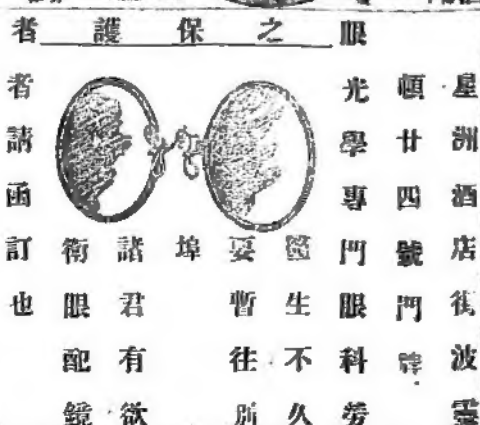 眼之保護者
星洲酒店街波靈
頓廿四號門牌
光學專門眼科勞
醫生不久
要暫往別
埠
諸君有欲
衛眼配鏡
者請函訂也